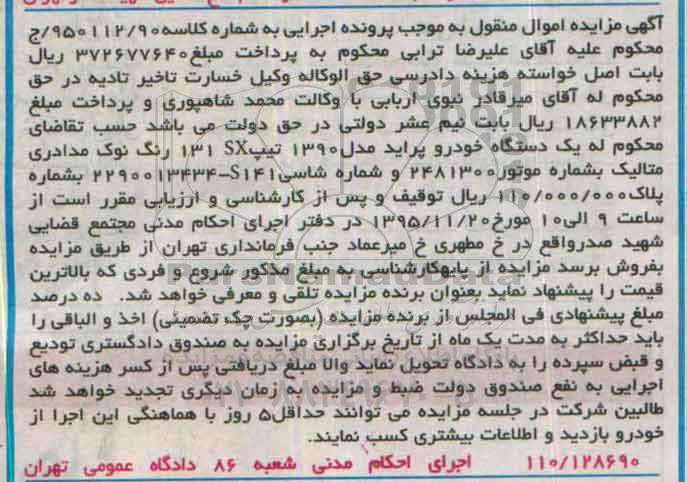 آگهی مزایده اموال منقول به موجب پرونده اجرایی به شماره کلاسه ۹۵۰۱۱۲/۹۰/ج
محکوم علیه آقای علیرضا ترابی محکوم به پرداخت مبلغ۳۷۲۶۷۷۶۴۰ ریال
بابت اصل خواسته هزینه دادرسی حق الوکاله وکیل خسارت تاخیر تادیه در حق
محکوم له آقای میرقادر نبوی اربابی با وکالت محمد شاهپوری و پرداخت مبلغ
۱۸۶۳۳۸۸۲ ریال بابت نیم عشر دولتی در حق دولت می باشد حسب تقاضای
محکوم له یک دستگاه خودرو پراید مدل۱۳۹۰ تیپSX ۱۳۱ رنگ نوک مدادری
متالیک بشماره موتور۲۴۸۱۳۰۰ و شماره شاسی۲۲۹۰۰۱۳۴۳۴-S۱۴۱ بشماره
پلاک۱۱۰/۰۰۰/۰۰۰ ریال توقیف و پس از کارشناسی و ارزیابی مقرر است از
ساعت ۹ الی۱۰ مورخ۱۳۹۵/۱۱/۲۰ در دفتر اجرای احکام مدنی مجتمع قضایی
شهید صدرواقع در خ مطهری خ میرعماد جنب فرمانداری تهران از طریق مزایده
بفروش برسد مزایده از پایهکارشناسی به مبلغ مذکور شروع و فردی که بالاترین
قیمت را پیشنهاد نماید بعنوان برنده مزایده تلقی و معرفی خواهد شد. ده درصد
مبلغ پیشنهادی فی المجلس از برنده مزایده (بصورت چک تضمینی) اخذ و الباقی را
باید حداکثر به مدت یک ماه از تاریخ برگزاری مزایده به صندوق دادگستری تودیع
و قبض سپرده را به دادگاه تحویل نماید والا مبلغ دریافتی پس از کسر هزینه های
اجرایی به نفع صندوق دولت ضبط و مزایده به زمان دیگری تجدید خواهد شد
طالبین شرکت در جلسه مزایده می توانند حداقل۵ روز با هماهنگی این اجرا از
خودرو بازدید و اطلاعات بیشتری کسب نمایند.
۱۱۰/۱۲۸۶۹۰ اجرای احکام مدنی شعبه ۸۶ دادگاه عمومی تهران